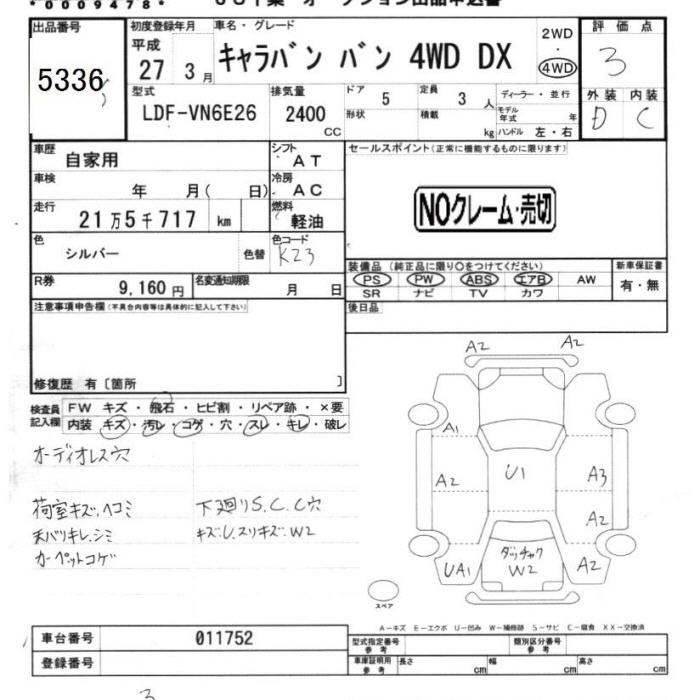 *00009478*
出品番号 初度登録年月 車名・グレード 2WD 評価点
5336 平成 27 3月 キャラバン バン 4WD DX ・ 4WD 3
型式 排気量 ドア 5 定員 3人 ディーラー・並行 外装 内装
LDF-VN6E26 2400 CC 形状 積載 kg モデル年式 年 D C
ハンドル 左・右
車歴 自家用 シフト AT セールスポイント(正常に機能するものに限ります)
車検 年 月( 日) 冷房 AC
走行 21万5千717 km 燃料 軽油 NOクレーム・売切
色 シルバー 色替 色コード K23
装備品 (純正品に限り○をつけてください) 新車保証書
R券 9,160円 名変通知期限 月 日 PS PW ABS エアB AW 有・無
SR ナビ TV カワ
注意事項申告欄(不具合内容等は具体的に記入して下さい) 後日品
修復歴 有〔箇所 〕
検査員記入欄 FW キズ・飛石・ヒビ割・リペア跡・×要
内装 キズ・汚レ・コゲ・穴・スレ・キレ・破レ
オーディオレス穴
荷室キズ、ヘコミ 下廻りS.C.C穴
天バリキレ、シミ キズ、U.スリキズ、W2
カーペットコゲ
A2 A2
A1
A2 U1 A3
A2
UA1 ダッチャク W2 A2
スペア
A-キズ E-エクボ U-凹み W-補修跡 S-サビ C-腐食 XX-交換済
車台番号 011752 型式指定番号 参考 類別区分番号 参考
登録番号 車庫証明用 参考 長さ cm 幅 cm 高さ cm
3